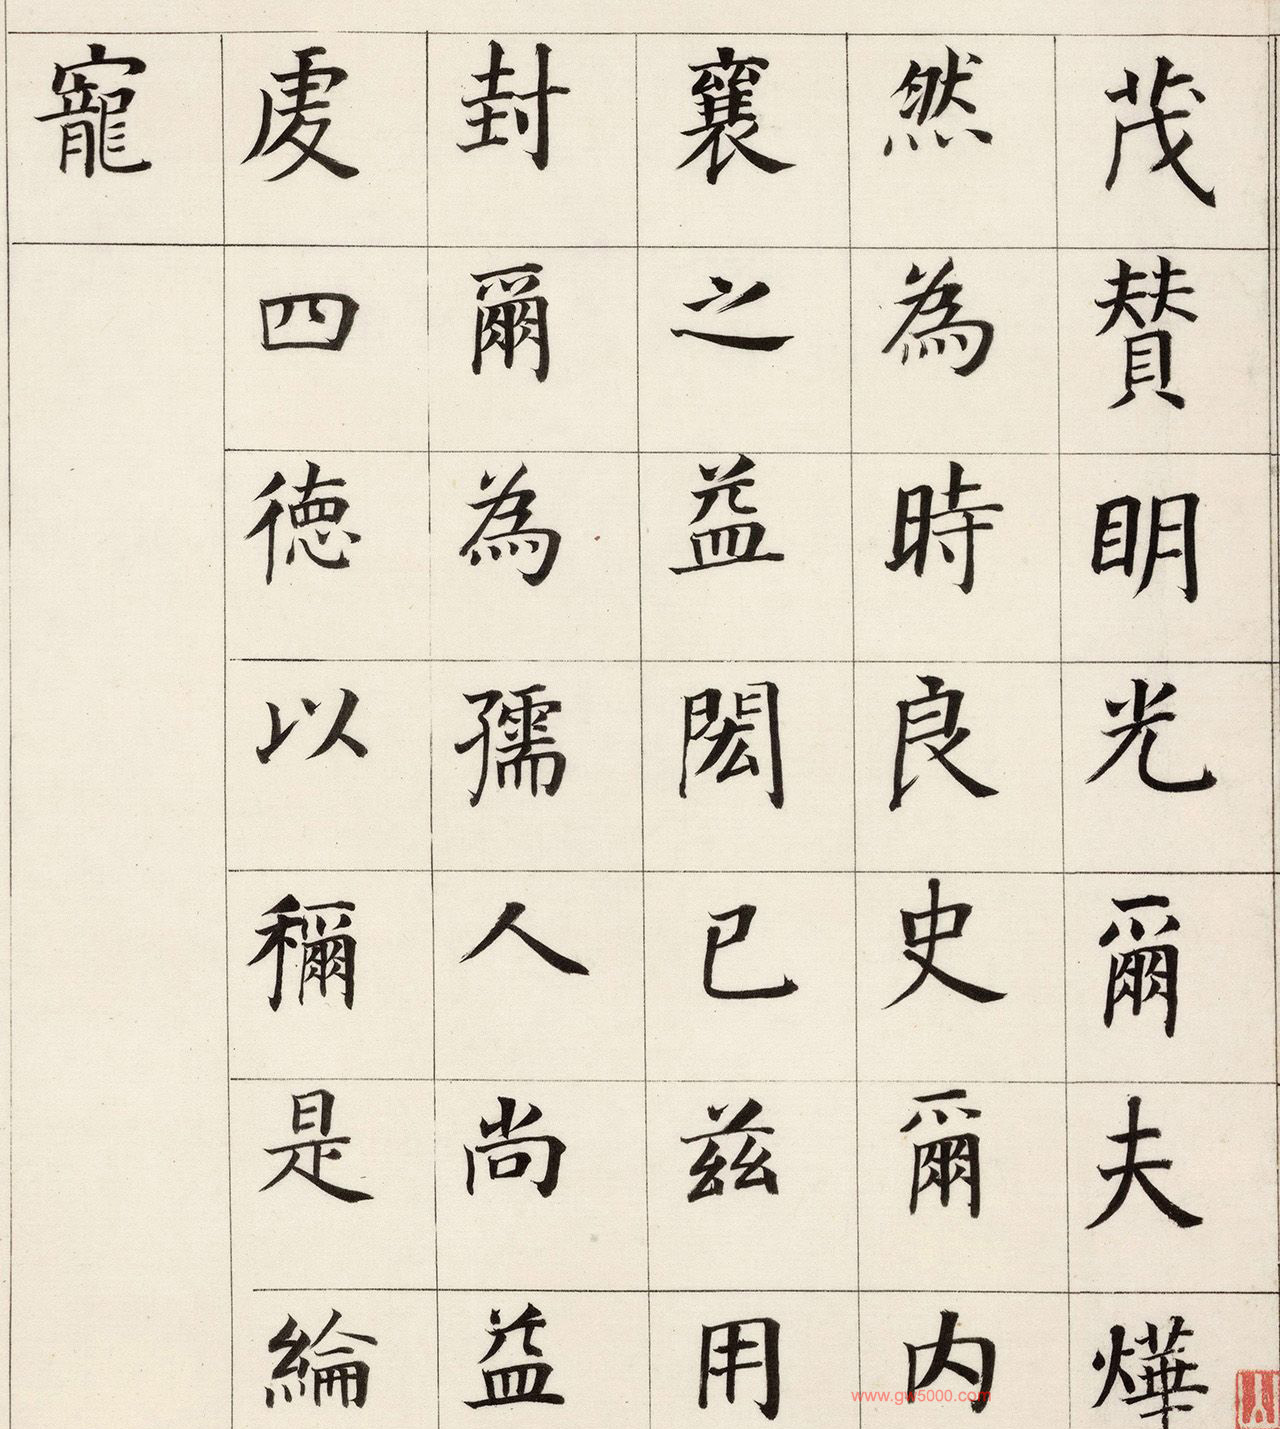 茂賛明光爾夫燁
然為時良史爾内
襄之益閎已兹用
封爾為孺人尚益
虔四德以稱是綸
寵
www.gw5000.com